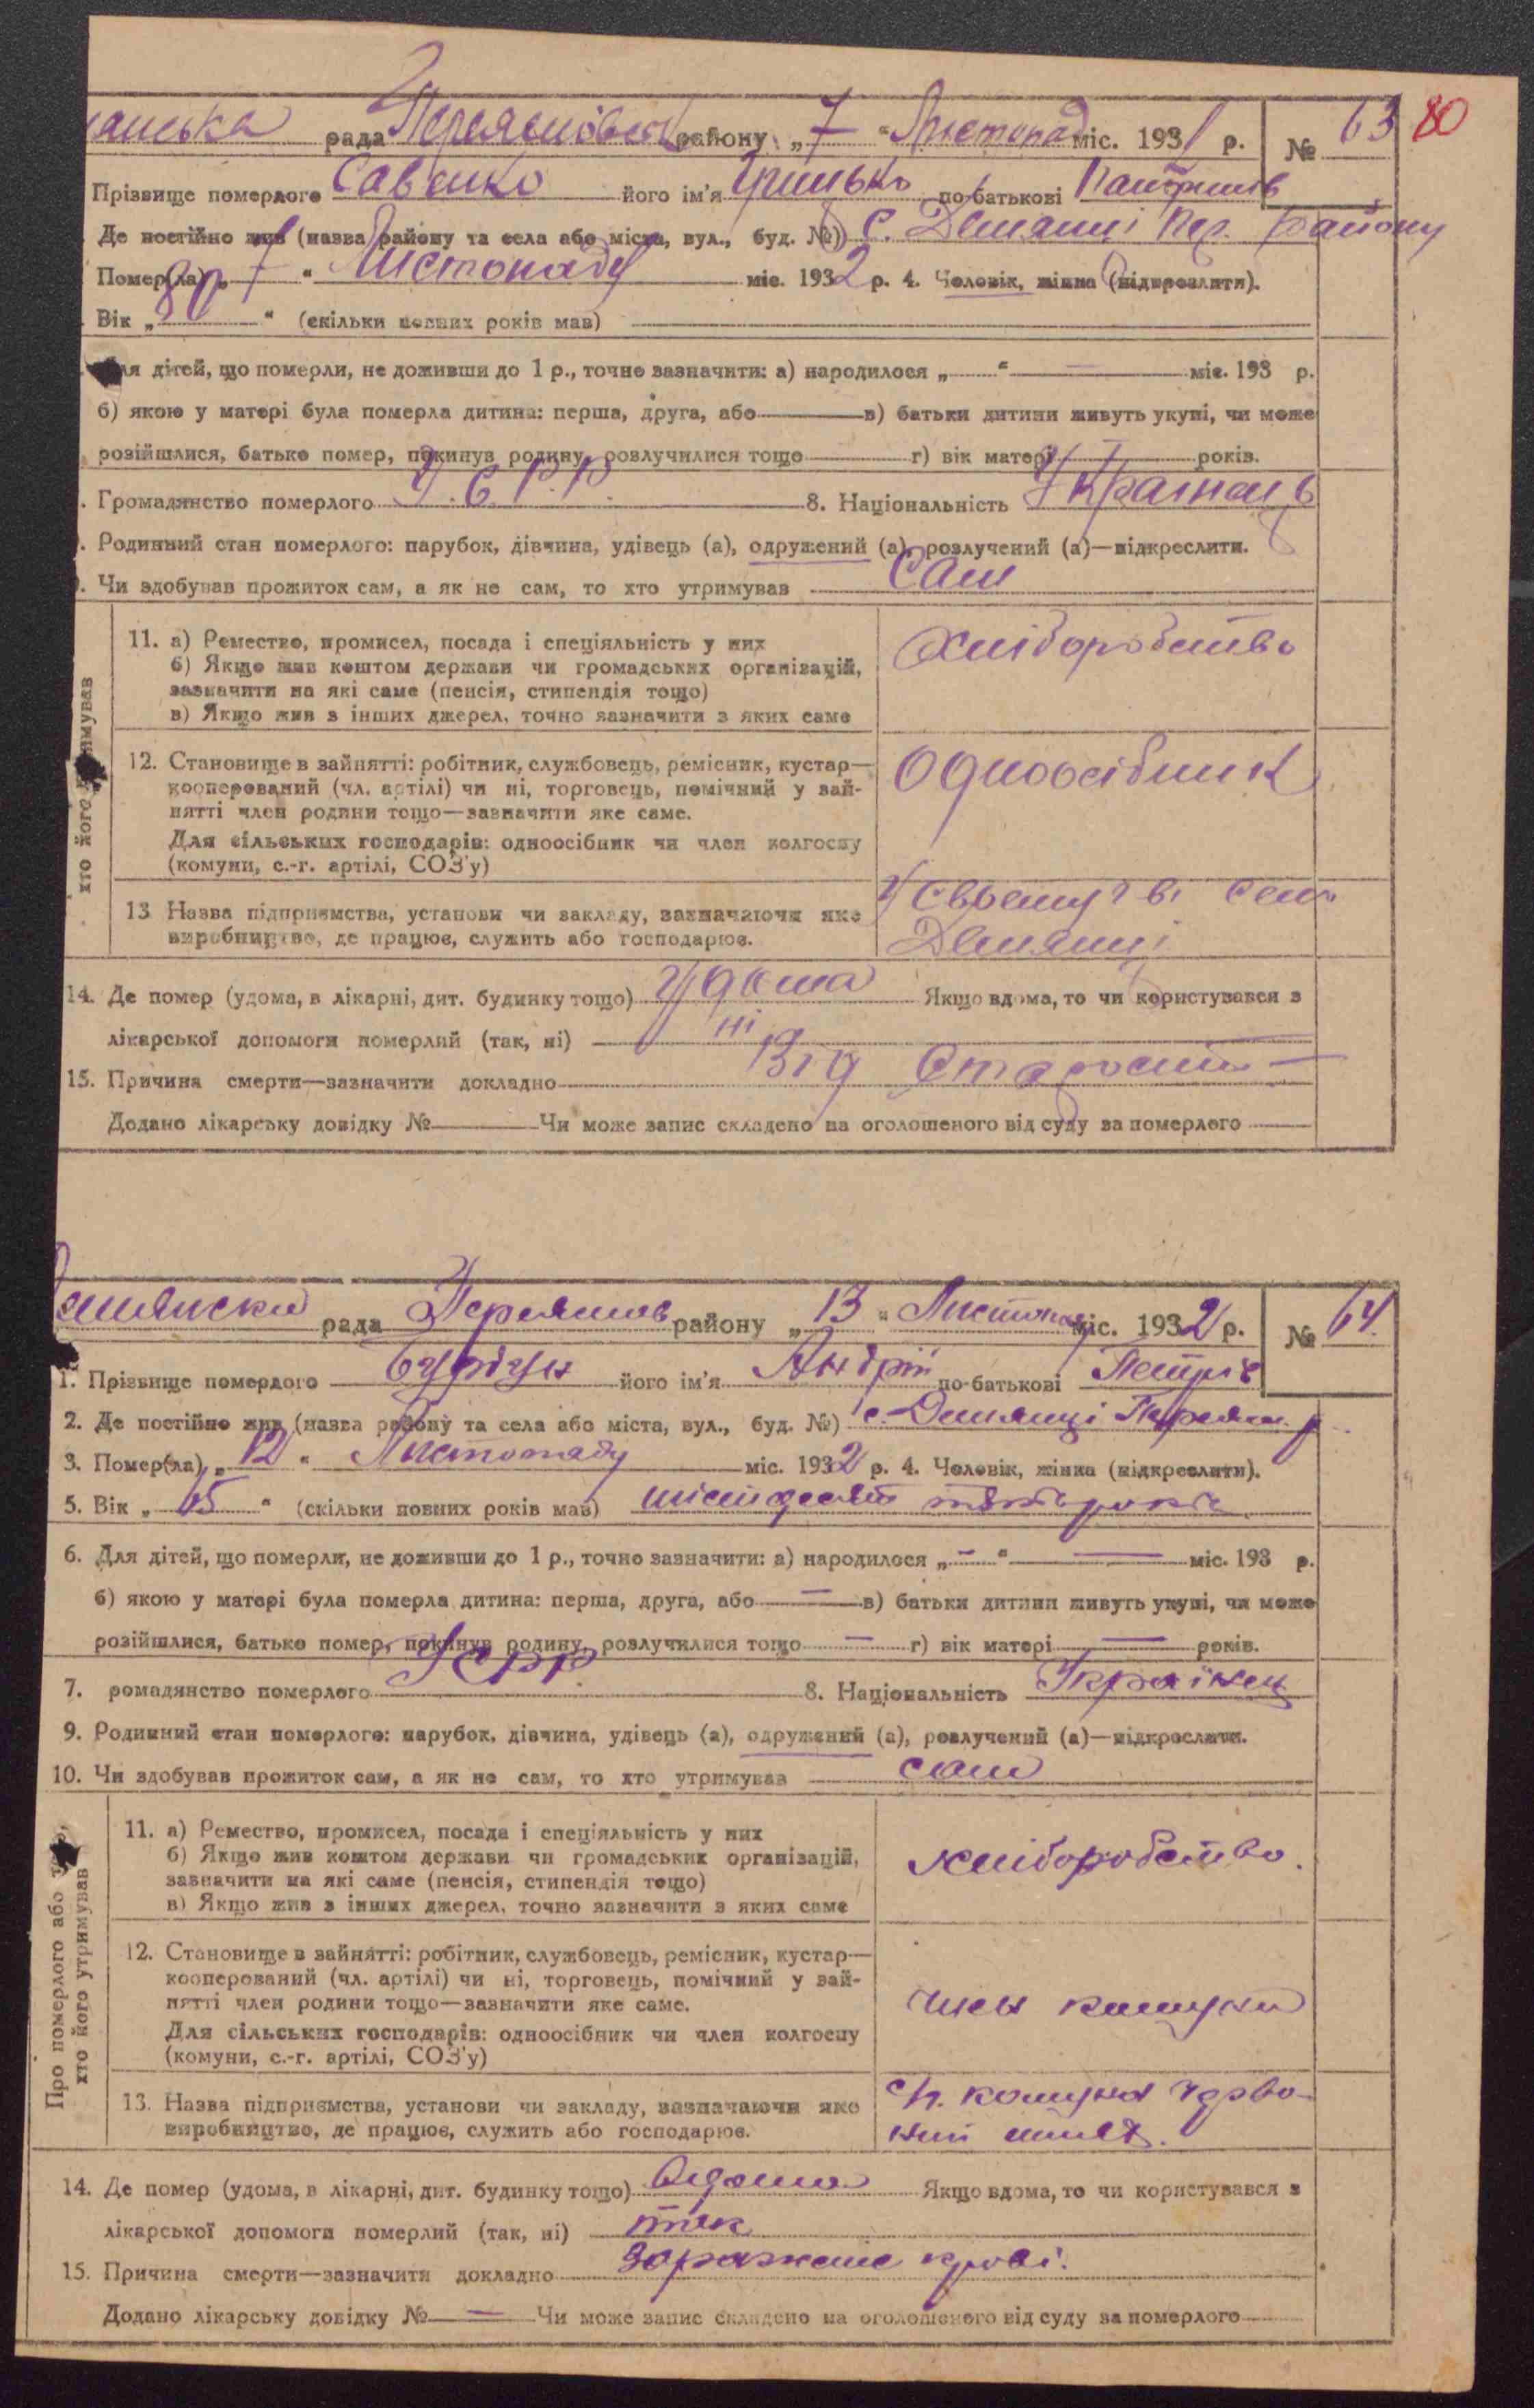 рада Переяславськ району „7“ Листопад міс. 1931 р. № 63 80
Прізвище померлого Савенко його ім'я Грицько по-батькові
Де постійно жив (назва району та села або міста, вул., буд. №) с. Дем'янці Пер. району
Помер(ла) „7“ Листопаду міс. 1932 р. 4. Чоловік, жінка (підкреслити).
Вік „80“ (скільки повних років мав)
для дітей, що померли, не доживши до 1 р., точно зазначити: а) народилося „ “ — міс. 193 р.
б) якою у матері була померла дитина: перша, друга, або в) батьки дитини живуть укупі, чи може
розійшлися, батько помер, покинув родину, розлучилися тощо г) вік матері — років.
. Громадянство померлого У.С.Р.Р. 8. Національність Українець
. Родинний стан померлого: парубок, дівчина, удівець (а), одружений (а), розлучений (а)—підкреслити.
. Чи здобував прожиток сам, а як не сам, то хто утримував Сам
хто його утримував
11. а) Ремество, промисел, посада і спеціяльність у них Хліборобство
б) Якщо жив коштом держави чи громадських організацій,
зазначити на які саме (пенсія, стипендія тощо)
в) Якщо жив з інших джерел, точно зазначити з яких саме
12. Становище в зайнятті: робітник, службовець, ремісник, кустар— Одноосібник
кооперований (чл. артілі) чи ні, торговець, помічний у зай-
нятті член родини тощо—зазначити яке саме.
Для сільських господарів: одноосібник чи член колгоспу
(комуни, с.-г. артілі, СОЗ'у)
У своєму г-ві село
13 Назва підприємства, установи чи закладу, зазначаючи яке
виробництво, де працює, служить або господарює. Дем'янці
14. Де помер (удома, в лікарні, дит. будинку тощо) Удома Якщо вдома, то чи користувався з
лікарської допомоги померлий (так, ні) ні
15. Причина смерти—зазначити докладно Від Старости —
Додано лікарську довідку № Чи може запис складено на оголошеного від суду за померлого
рада Переяслав району „13“ Листопад міс. 1932 р. № 64.
1. Прізвище померлого його ім'я Андрій по-батькові Петрів
2. Де постійно жив (назва району та села або міста, вул., буд. №) с. Демянці Переясл. р
3. Помер(ла) „12“ Листопаду міс. 1932 р. 4. Чоловік, жінка (підкреслити).
5. Вік „65“ (скільки повних років мав) шісидесят пять років
6. Для дітей, що померли, не доживши до 1 р., точно зазначити: а) народилося „—“ — міс. 193 р.
б) якою у матері була померла дитина: перша, друга, або — в) батьки дитини живуть укупі, чи може
розійшлися, батько помер, покинув родину, розлучилися тощо — г) вік матері — років.
7. ромадянство померлого УСРР. 8. Національність Українец
9. Родинний стан померлого: парубок, дівчина, удівець (а), одружений (а), розлучений (а)—підкреслити.
10. Чи здобував прожиток сам, а як не сам, то хто утримував сам
Про померлого або того,
хто його утримував
11. а) Ремество, промисел, посада і спеціяльність у них
б) Якщо жив коштом держави чи громадських організацій, хліборобство.
зазначити на які саме (пенсія, стипендія тощо)
в) Якщо жив з інших джерел, точно зазначити з яких саме
12. Становище в зайнятті: робітник, службовець, ремісник, кустар—
кооперований (чл. артілі) чи ні, торговець, помічний у зай-
нятті член родини тощо—зазначити яке саме. член комуни
Для сільських господарів: одноосібник чи член колгоспу
(комуни, с.-г. артілі, СОЗ'у)
13. Назва підприємства, установи чи закладу, зазначаючи яке комуна черво-
виробництво, де працює, служить або господарює. ний
14. Де помер (удома, в лікарні, дит. будинку тощо) Вдома Якщо вдома, то чи користувався з
лікарської допомоги померлий (так, ні) так
15. Причина смерти—зазначити докладно Зараженіе крові.
Додано лікарську довідку № — Чи може запис складено на оголошеного від суду за померлого